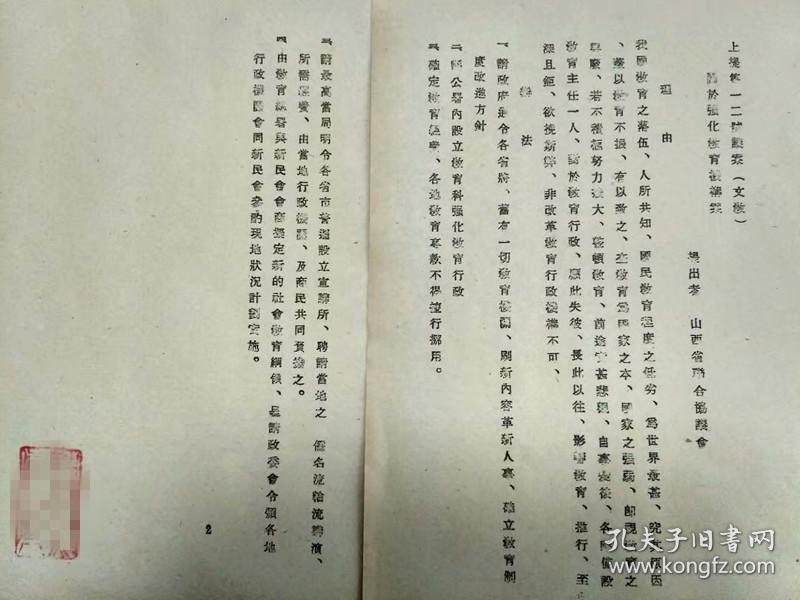 上提第一二號議案（文敎）
關於强化敎育機構案
提出者　山西省聯合協議會
理由
我國敎育之落伍、人所共知、國民敎育程度之低劣、爲世界最甚、究其原因
、蓋以敎育不振、有以致之、查敎育爲國家之本、國家之强弱、即視敎育之
興廢、若不積極努力擴大、整頓敎育、前途實甚悲觀、自事變後、各縣僅設
敎育主任一人、對於敎育行政、顧此失彼、長此以往、影響敎育、推行、至
深且鉅、欲挽斯弊、非改革敎育行政機構不可、
辦法
一、請政府通令各省將、舊有一切敎育機關、刷新內容革新人事、確立敎育制
度改進方針
二、縣公署內設立敎育科强化敎育行政
三、確定敎育經費、各地敎育專款不得擅行挪用。
請最高當局明令各省市普遍設立宣講所、聘請當地之　儒名流輪流講演、
所需經費、由當地行政機關、及商民共同負擔之。
由敎育總署與新民會會商擬定新的社會敎育綱領、呈請政委會令頒各地
行政機關會同新民會參酌現地狀況計劃實施。
2
孔夫子旧书网
www.kongfz.com